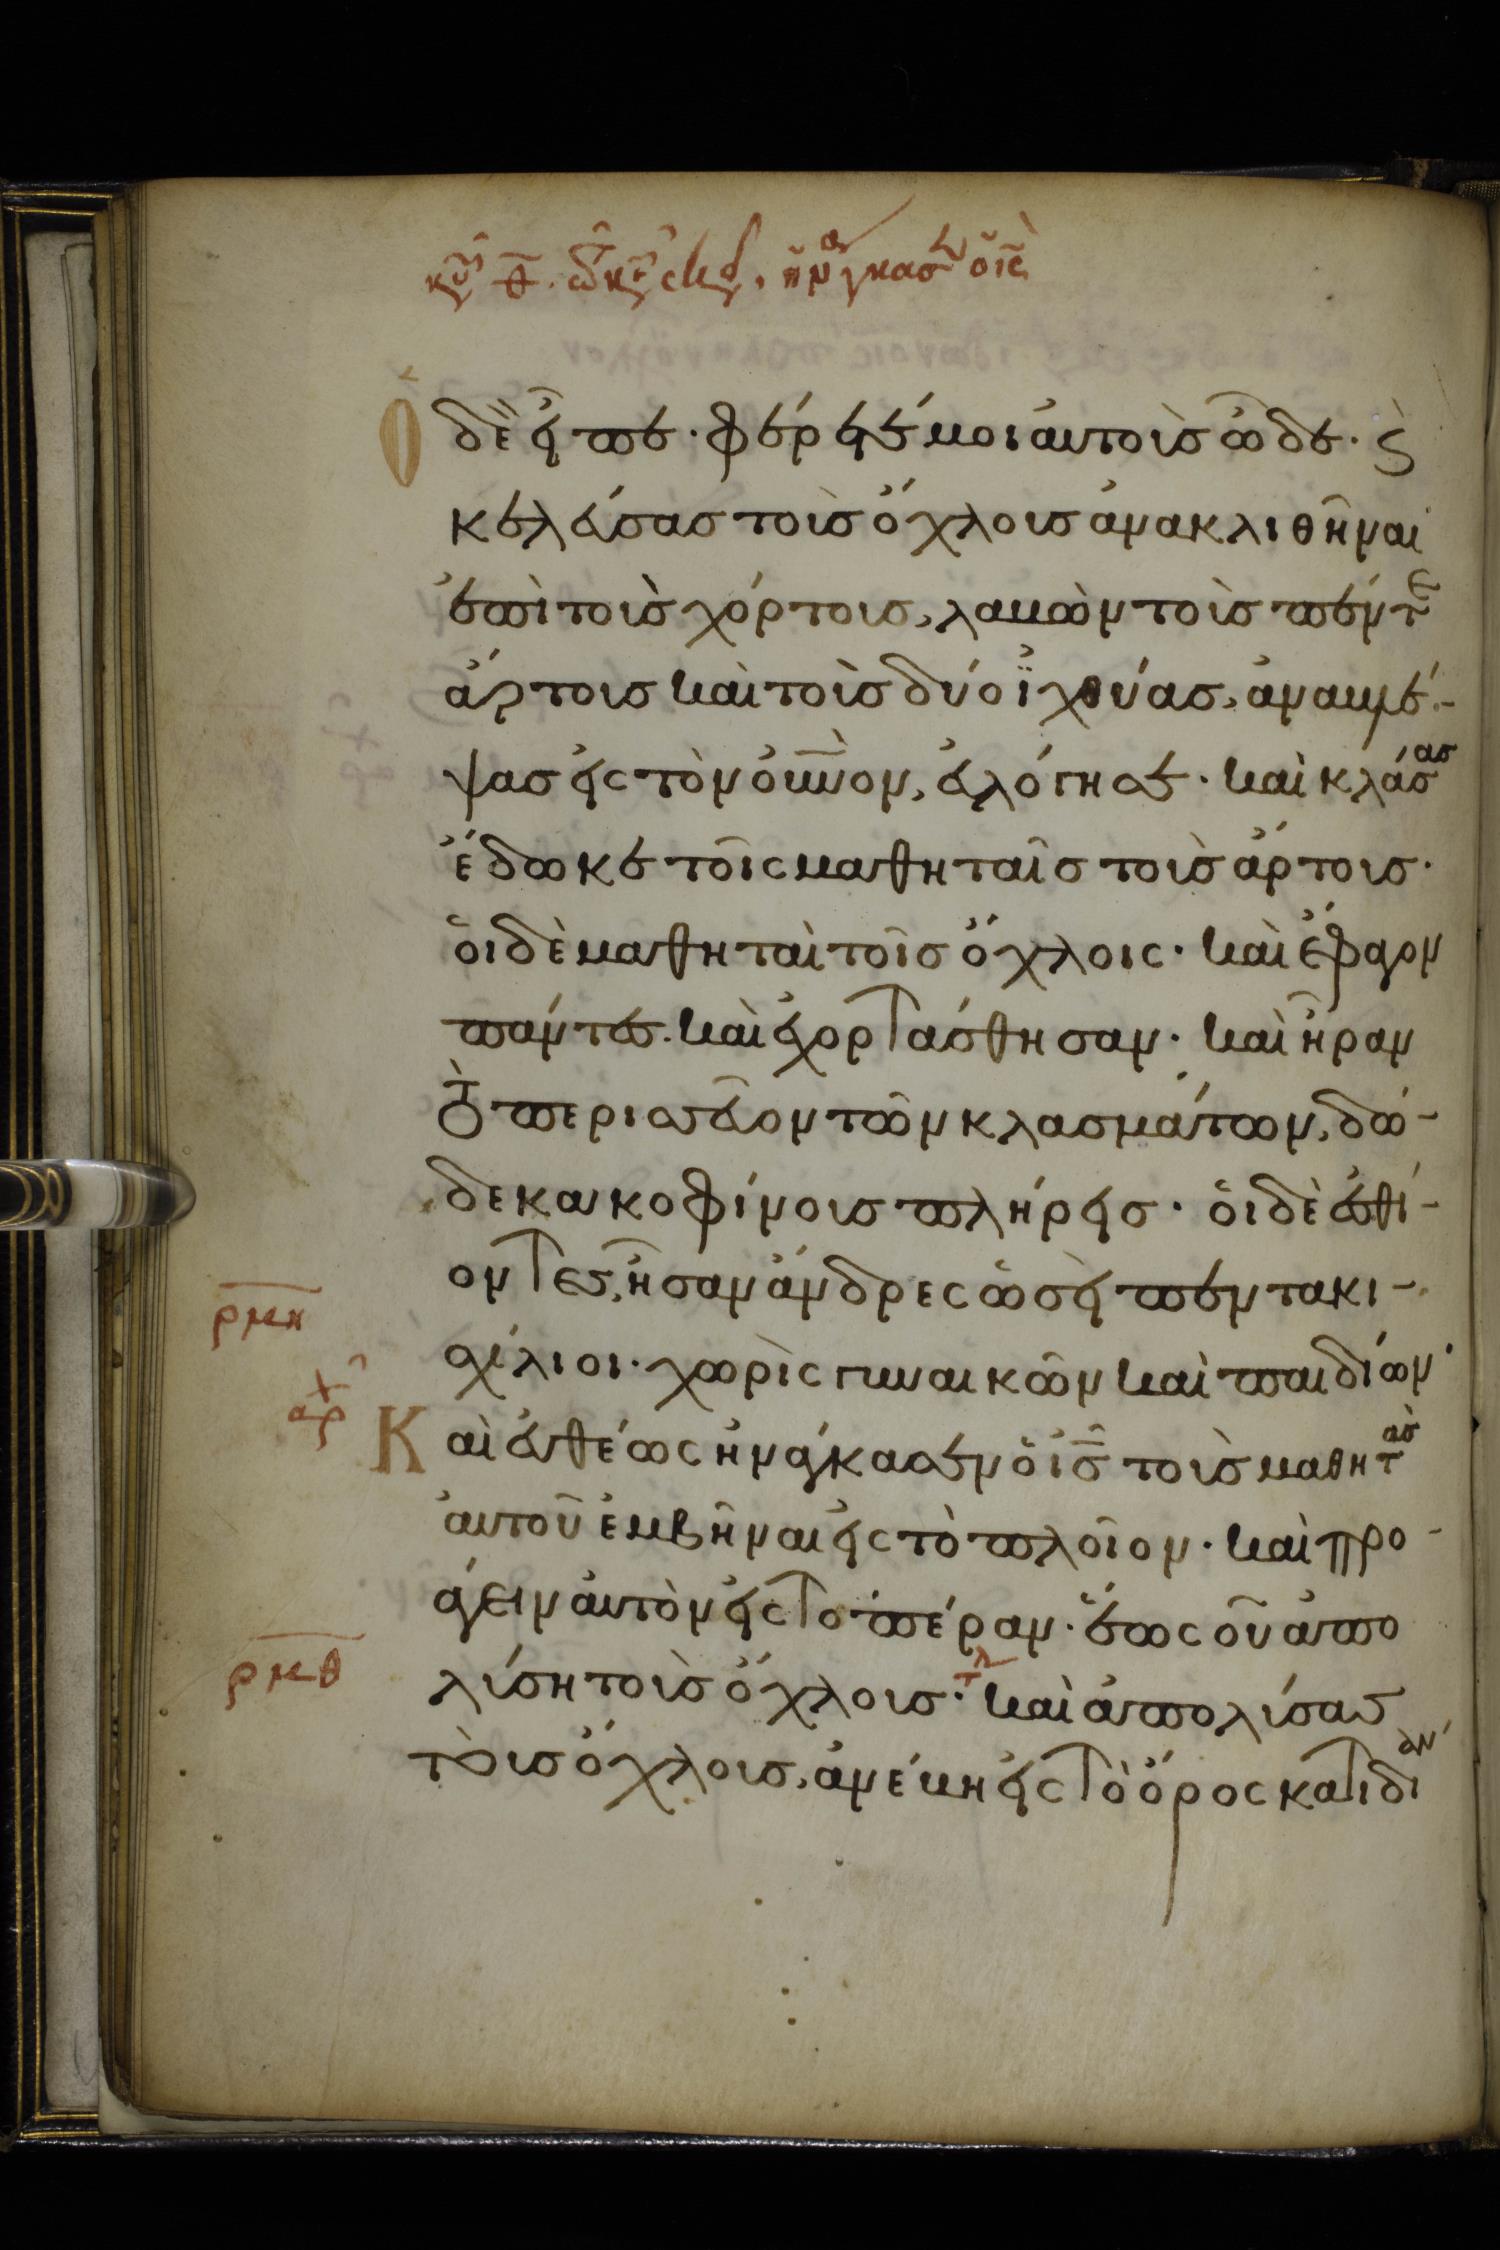 κυ θ. ἠνάγκασεν ὁ ις
Ὁ δὲ εἶπε· φέρετέ μοι αὐτοὺς ὧδε· ϛ
κελεύσας τοὺς ὄχλους ἀνακλιθῆναι
ἐπὶ τοὺς χόρτους, λαβὼν τοὺς πέντε
ἄρτους καὶ τοὺς δύο ἰχθύας, ἀναβλέ-
ψας εἰς τὸν οὐνον, εὐλόγησε· καὶ κλάσας
ἔδωκε τοῖς μαθηταῖς τοὺς ἄρτους·
οἱ δὲ μαθηταὶ τοῖς ὄχλοις· καὶ ἔφαγον
πάντες. καὶ ἐχορτάσθησαν· καὶ ἦραν
τὸ περισσεῦον τῶν κλασμάτων, δώ-
δεκα κοφίνους πλήρεις· οἱ δὲ ἐσθί-
οντες, ἦσαν ἄνδρες ὡσεὶ πεντακι-
ρμη
σχίλιοι· χωρὶς γυναικῶν καὶ παιδίων·
ἀρχ
Καὶ εὐθέως ἠνάγκασεν ὁ ις τοὺς μαθητὰς
αὐτοῦ ἐμβῆναι εἰς τὸ πλοῖον· καὶ προ-
άγειν αὐτὸν εἰς τὸ πέραν· ἕως οὗ ἀπο
ρμθ
λύσῃ τοὺς ὄχλους· τλ καὶ ἀπολύσας
τοὺς ὄχλους, ἀνέβη εἰς τὸ ὄρος κατιδίαν